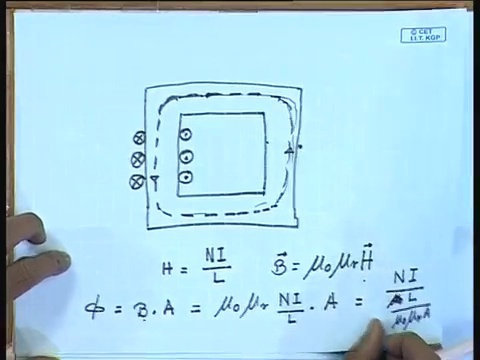 © CET
I.I.T. KGP
H = NI/L    B⃗ = μ₀μᵣH⃗
Φ = B.A = μ₀μᵣ NI/L . A = NI/(L/μ₀μᵣA)